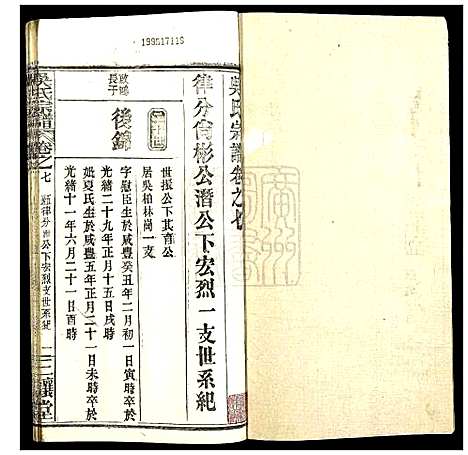 吳氏宗譜卷之七
律分尙彬公濳公下宏烈一支世系紀
世振公下其育公
居吳柏林崗一支
後錦
長子
字慰臣生於咸豐癸丑年二月初一日寅時卒於
光緒二十九年正月十五日戌時
妣夏氏生於咸豐五年正月二十一日未時卒於
光緒十一年六月二十一日酉時
吳氏宗譜 卷之七
律分濳公下宏烈支世系紀
一
三讓堂
199517116